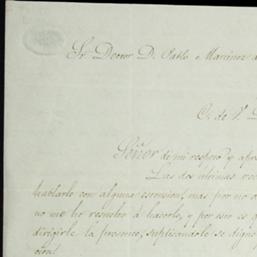 Sr. Doctor D. Pablo
C. de V.
Señor de mi respeto y
Las dos ultimas
hablarle con alguna estension, mas por no
no me he resuelto á hacerlo, y por eso es
dirigirle la presente, suplicandole se digne